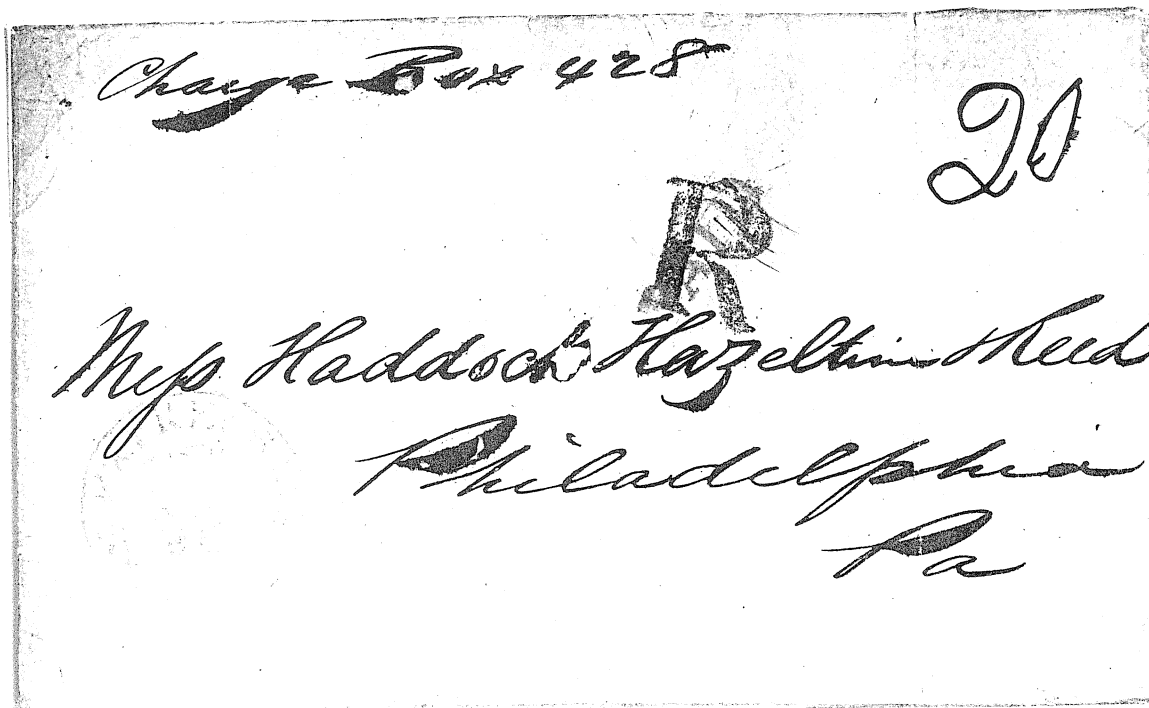 Charge Box 428
20
R
Mess Haddock Hazeltine & Reed
Philadelphia
Pa